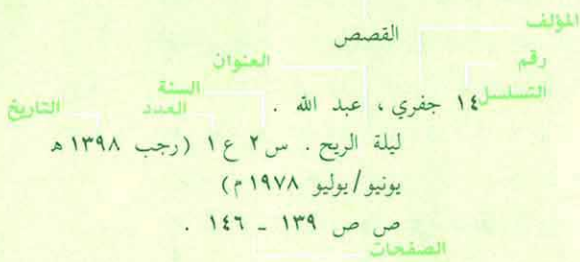 المؤلف
القصص
رقم
التسلسل
العنوان
السنة
العدد
التاريخ
١٤ جفري ، عبد الله .
ليلة الريح . س ٢ ع ١ ( رجب ١٣٩٨ هـ
يونيو / يوليو ١٩٧٨ م )
ص ص ١٣٩ - ١٤٦ .
الصفحات